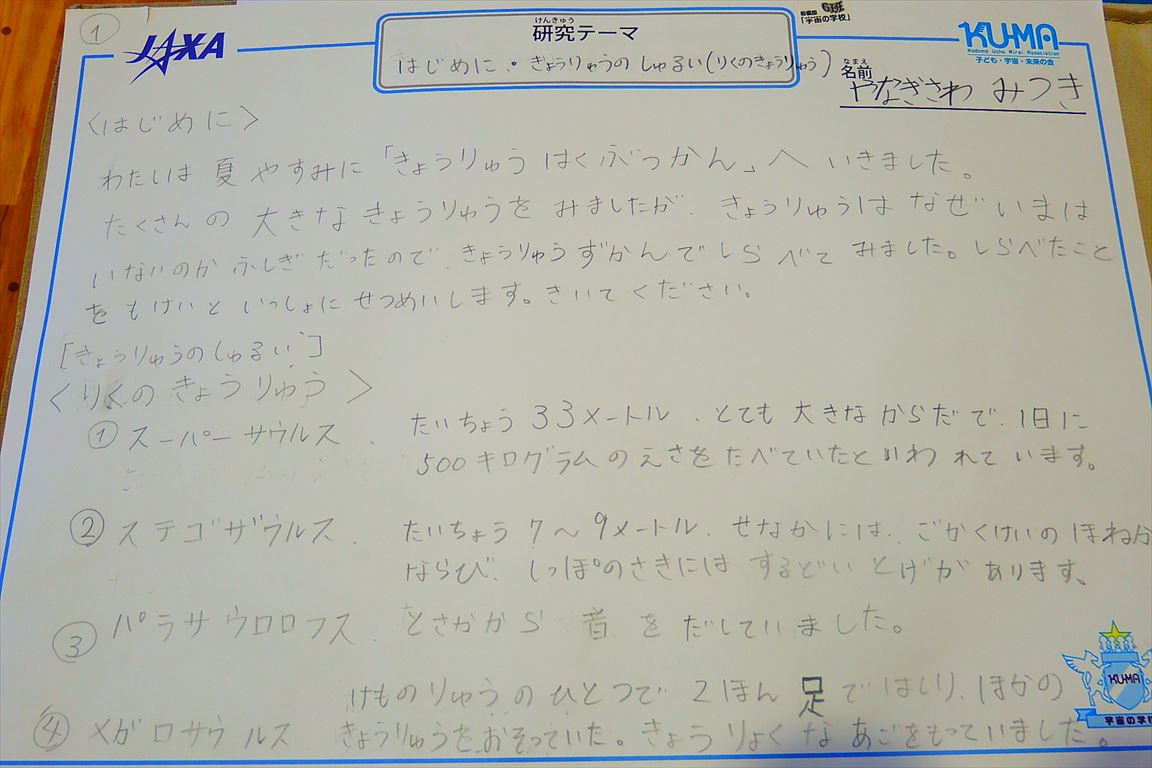 ①
JAXA
けんきゅう
研究テーマ
はじめに・きょうりゅうのしゅるい(りくのきょうりゅう)
「宇宙の学校」
KU-MA
Kodomo Uchu Mirai Association
子ども・宇宙・未来の会
なまえ
名前
やなぎさわ みつき
〈はじめに〉
わたしは夏やすみに「きょうりゅうはくぶつかん」へいきました。
たくさんの大きなきょうりゅうをみましたが、きょうりゅうはなぜいまは
いないのかふしぎだったので、きょうりゅうずかんでしらべてみました。しらべたこと
をもけいといっしょにせつめいします。きいてください。
[きょうりゅうのしゅるい]
〈りくのきょうりゅう〉
①スーパーサウルス、 たいちょう33メートル、とても大きなからだで、1日に
500キログラムのえさをたべていたといわれています。
②ステゴザウルス、 たいちょう7〜9メートル、せなかには、ごかくけいのほねが
ならび、しっぽのさきにはするどいとげがあります。
③パラサウロロフス、 とさかから音をだしていました。
けものりゅうのひとつで2ほん足ではしり、ほかの
④メガロサウルス きょうりゅうをおそっていた。きょうりょくなあごをもっていました。
KU-MA
宇宙の学校